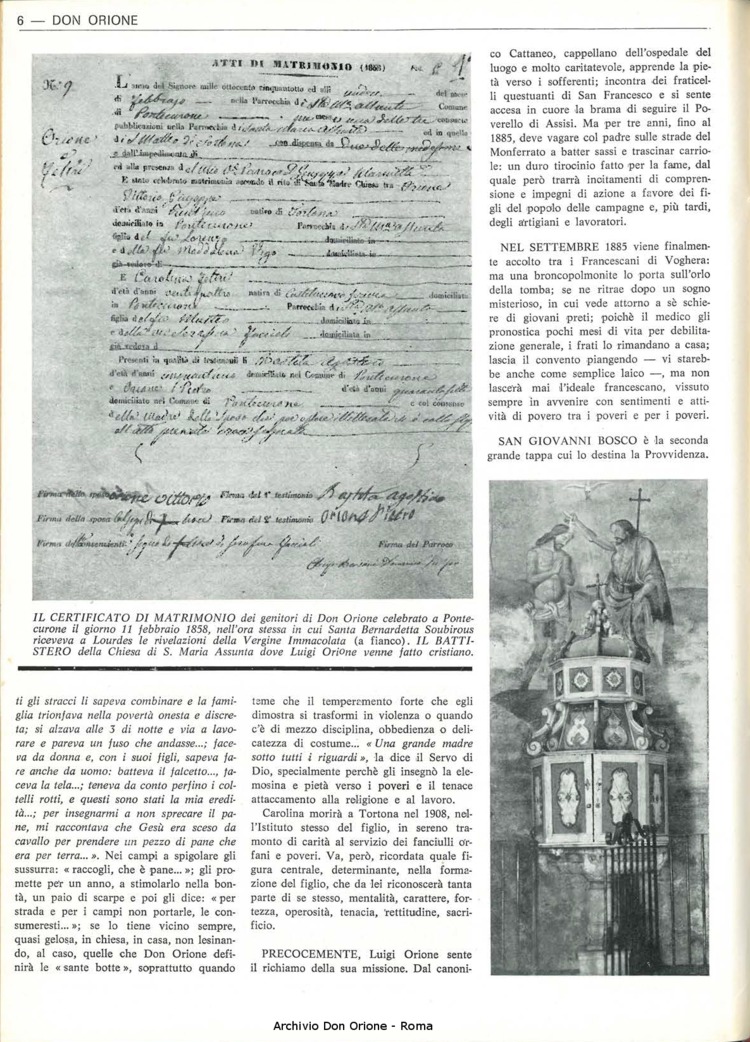 6 — DON ORIONE
ATTI DI MATRIMONIO (1858)
N.º 9
Orione
e
Feltri
L'anno del Signore mille ottocento cinquantotto ed alli undici del mese
di febbrajo nella Parrocchia di S.ta M.a Assunta Comune
di Pontecurone
pubblicazioni nella Parrocchia di Santa Maria Assunta ed in quella
di S. Matteo di Tortona con dispensa da
e dall'impedimento di
ed alla presenza del
È stato celebrato matrimonio secondo il rito di Santa Madre Chiesa tra Orione
Vittorio Giuseppe
d'età d'anni nativo di Tortona
domiciliato in Pontecurone Parrocchia di S.ta M.a Assunta
figlio del fu Lorenzo domiciliato in
e della fu Maddalena Vigo domiciliata in
già vedovo di
E Carolina Feltri
d'età d'anni ventiquattro nativa di Castelnuovo domiciliata
in Pontecurone Parrocchia di S.ta M.a Assunta
figlia del domiciliato in
e della domiciliata in
già vedova di
Presenti in qualità di testimonii li Bastita Agostino
d'età d'anni cinquantuno domiciliato nel Comune di Pontecurone
e Orione Pietro d'età d'anni
domiciliato nel Comune di Pontecurone e col consenso
Firma dello sposo Orione Vittorio Firma del 1º testimonio Bastita Agostino
Firma della sposa Firma del 2º testimonio Orione Pietro
Firma Firma del Parroco
IL CERTIFICATO DI MATRIMONIO dei genitori di Don Orione celebrato a Ponte-
curone il giorno 11 febbraio 1858, nell'ora stessa in cui Santa Bernardetta Soubirous
riceveva a Lourdes le rivelazioni della Vergine Immacolata (a fianco). IL BATTI-
STERO della Chiesa di S. Maria Assunta dove Luigi Orione venne fatto cristiano.
ti gli stracci li sapeva combinare e la fami-
glia trionfava nella povertà onesta e discre-
ta; si alzava alle 3 di notte e via a lavo-
rare e pareva un fuso che andasse...; face-
va da donna e, con i suoi figli, sapeva fa-
re anche da uomo: batteva il falcetto..., fa-
ceva la tela...; teneva da conto perfino i col-
telli rotti, e questi sono stati la mia eredi-
tà...; per insegnarmi a non sprecare il pa-
ne, mi raccontava che Gesù era sceso da
cavallo per prendere un pezzo di pane che
era per terra... ». Nei campi a spigolare gli
sussurra: « raccogli, che è pane... »; gli pro-
mette per un anno, a stimolarlo nella bon-
tà, un paio di scarpe e poi gli dice: « per
strada e per i campi non portarle, le con-
sumeresti... »; se lo tiene vicino sempre,
quasi gelosa, in chiesa, in casa, non lesinan-
do, al caso, quelle che Don Orione defi-
nirà le « sante botte », soprattutto quando
teme che il temperamento forte che egli
dimostra si trasformi in violenza o quando
c'è di mezzo disciplina, obbedienza o deli-
catezza di costume... « Una grande madre
sotto tutti i riguardi », la dice il Servo di
Dio, specialmente perchè gli insegnò la ele-
mosina e pietà verso i poveri e il tenace
attaccamento alla religione e al lavoro.
Carolina morirà a Tortona nel 1908, nel-
l'Istituto stesso del figlio, in sereno tra-
monto di carità al servizio dei fanciulli or-
fani e poveri. Va, però, ricordata quale fi-
gura centrale, determinante, nella forma-
zione del figlio, che da lei riconoscerà tanta
parte di se stesso, mentalità, carattere, for-
tezza, operosità, tenacia, rettitudine, sacri-
ficio.
PRECOCEMENTE, Luigi Orione sente
il richiamo della sua missione. Dal canoni-
co Cattaneo, cappellano dell'ospedale del
luogo e molto caritatevole, apprende la pie-
tà verso i sofferenti; incontra dei fraticel-
li questuanti di San Francesco e si sente
accesa in cuore la brama di seguire il Po-
verello di Assisi. Ma per tre anni, fino al
1885, deve vagare col padre sulle strade del
Monferrato a batter sassi e trascinar carrio-
le: un duro tirocinio fatto per la fame, dal
quale però trarrà incitamenti di compren-
sione e impegni di azione a favore dei fi-
gli del popolo delle campagne e, più tardi,
degli artigiani e lavoratori.
NEL SETTEMBRE 1885 viene finalmen-
te accolto tra i Francescani di Voghera:
ma una broncopolmonite lo porta sull'orlo
della tomba; se ne ritrae dopo un sogno
misterioso, in cui vede attorno a sè schie-
re di giovani preti; poichè il medico gli
pronostica pochi mesi di vita per debilita-
zione generale, i frati lo rimandano a casa;
lascia il convento piangendo — vi stareb-
be anche come semplice laico —, ma non
lascerà mai l'ideale francescano, vissuto
sempre in avvenire con sentimenti e atti-
vità di povero tra i poveri e per i poveri.
SAN GIOVANNI BOSCO è la seconda
grande tappa cui lo destina la Provvidenza.
Archivio Don Orione - Roma